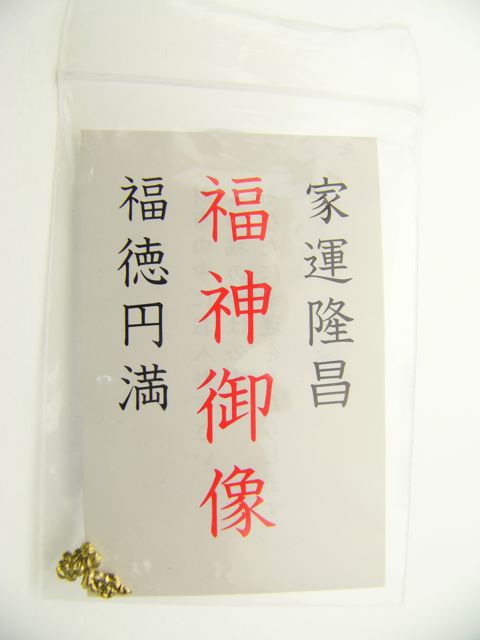 家運隆昌
福神御像
福徳円満